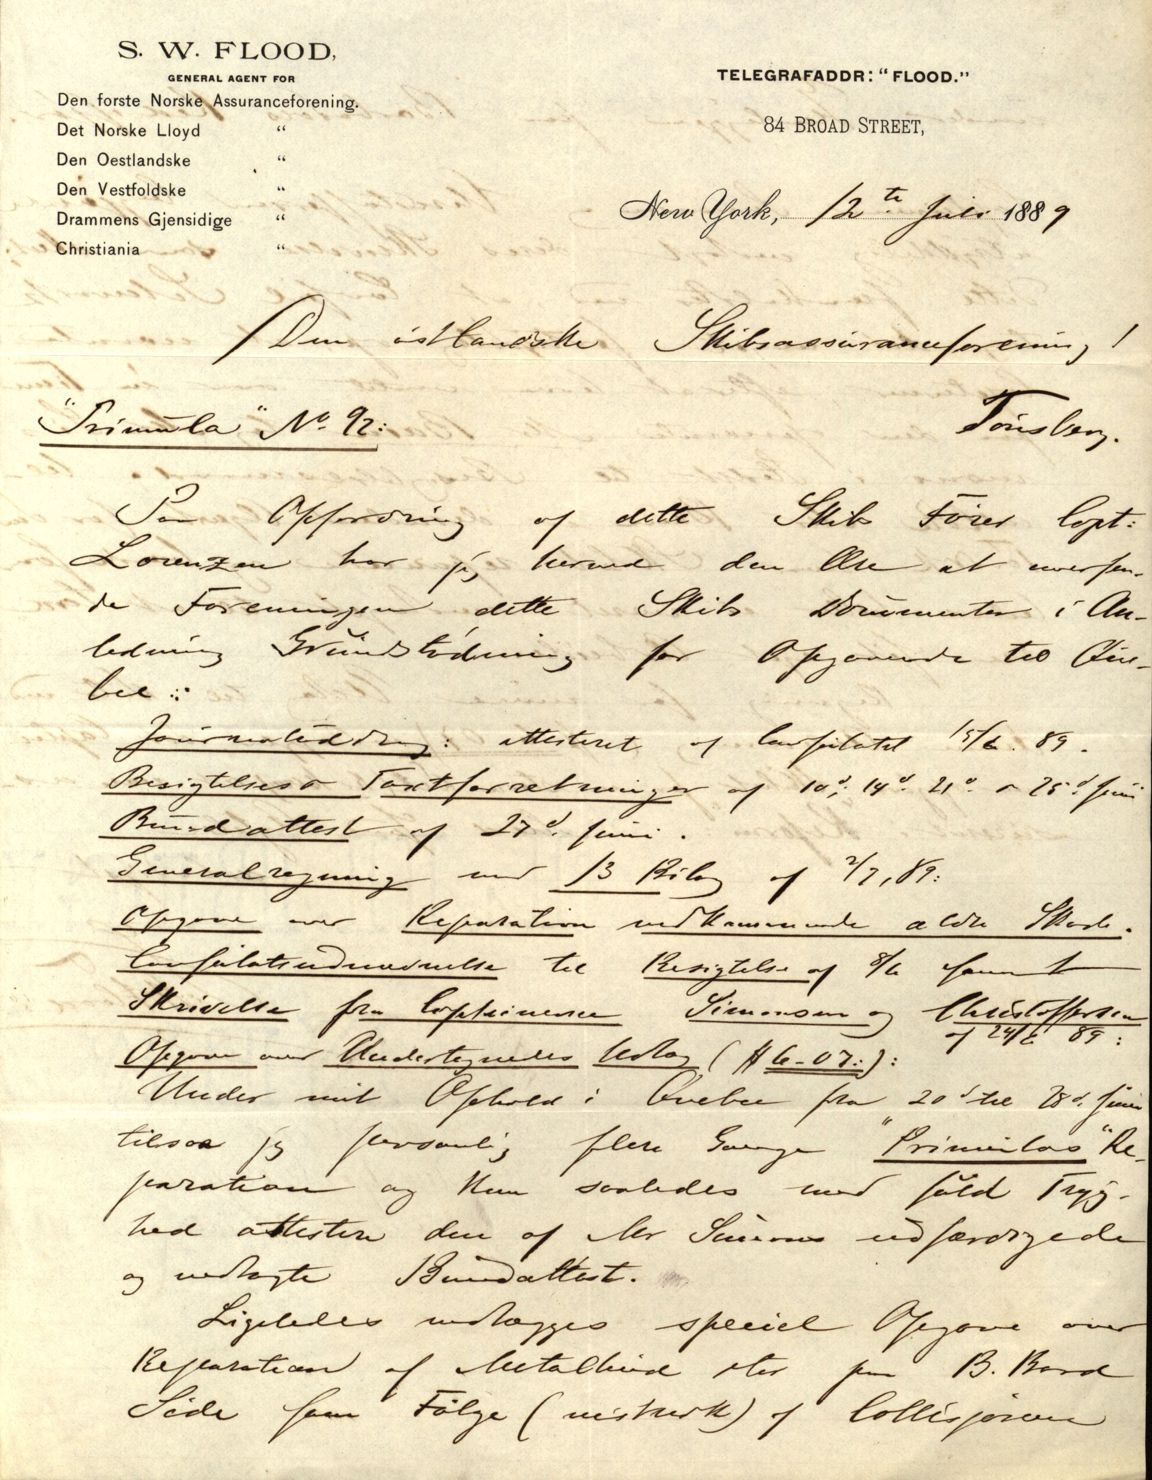 S. W. FLOOD,
GENERAL AGENT FOR
Den forste Norske Assuranceforening.
Det Norske Lloyd "
Den Oestlandske "
Den Vestfoldske "
Drammens Gjensidige "
Christiania "
TELEGRAFADDR: "FLOOD."
84 BROAD STREET,
New York, 12te Juli 1889
Den östlandske Skibsassuranceforening!
"Primula" No. 92:
Tönsberg.
Paa Opfordring af dette Skibs Förer Capt:
Lorenzen har jeg herved den Ære at oversen-
de Foreningen dette Skibs Documenter i An-
ledning Grundstödning för Opgaaende til Que-
bec:
Journaludtog: attesteret af Consulatet 15/6. 89.
Besigtelses o Taxtforretninger af 10d, 14d. 21d. o 25d. Juni
Bundattest af 27d. Juni.
Generalregning med 13 Bilag af 2/7, 89:
Opgave over Reparation vedkommende ældre Skade.
Consulatsudnævnelse til Besigtelse af 8/6 samt
Skrivelse fra Captainerne Simonsen og Christoffersen
af 24/6 89:
Opgave over Undertegnedes Udlæg ($ 6-07.):
Under mit Ophold i Quebec fra 20d til 28d. Juni
tilsaa jeg personlig flere Gange "Primulas" Re-
paration og kan saaledes med fuld Tryg-
hed attestere den af Mr Simons udfærdigede
og vedlagte Bundattest.
Ligeledes vedlægges speciel Opgave over
Reparation af Metalhud etc paa B. Bord
Side som Fölge ( ) af Collisjonen